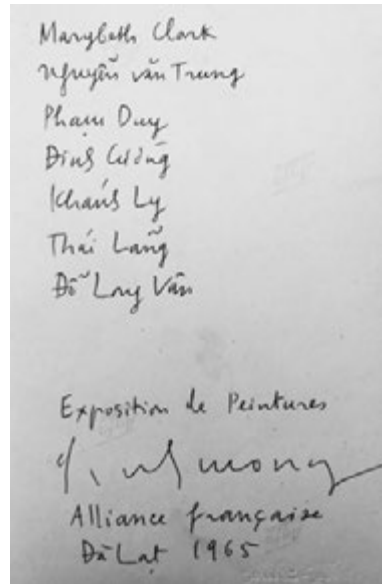 Marybeth Clark
Nguyễn văn Trung
Phạm Duy
Đinh Cường
Khánh Ly
Thái Lãng
Đỗ Long Vân
Exposition de Peintures
Alliance française
Đà Lạt 1965